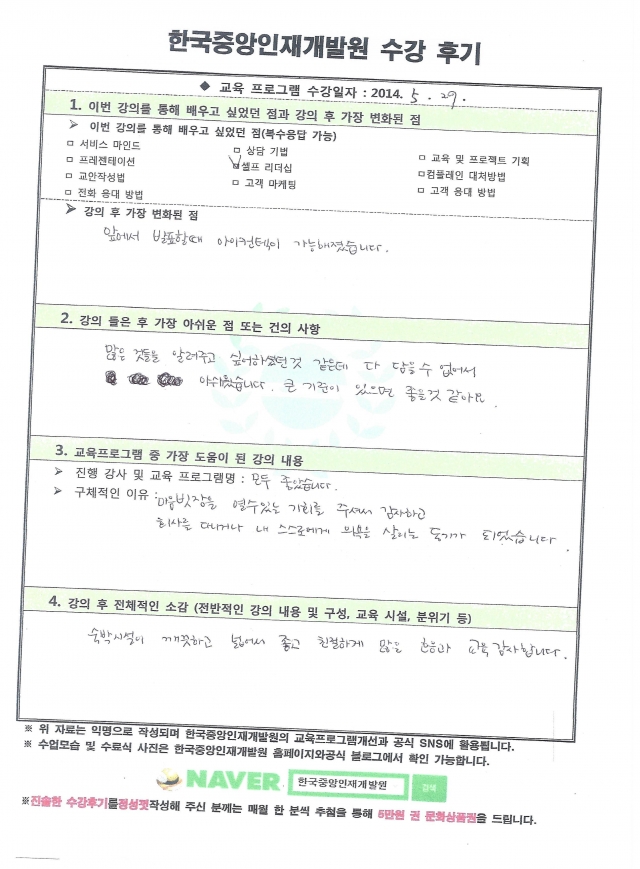 한국중앙인재개발원 수강 후기
◆ 교육 프로그램 수강일자 : 2014. 5. 29.
1. 이번 강의를 통해 배우고 싶었던 점과 강의 후 가장 변화된 점
➢ 이번 강의를 통해 배우고 싶었던 점(복수응답 가능)
□ 서비스 마인드 □ 상담 기법 □ 교육 및 프로젝트 기획
□ 프레젠테이션 ☑셀프 리더십 □컴플레인 대처방법
□ 교안작성법 □ 고객 마케팅 □ 고객 응대 방법
□ 전화 응대 방법
➢ 강의 후 가장 변화된 점
앞에서 발표할때 아이컨텍이 가능해졌습니다.
2. 강의 들은 후 가장 아쉬운 점 또는 건의 사항
많은 것들을 알려주고 싶어하셨던것 같은데 다 담을수 없어서
아쉬웠습니다. 큰 기준이 있으면 좋을것 같아요
3. 교육프로그램 중 가장 도움이 된 강의 내용
➢ 진행 강사 및 교육 프로그램명 : 모두 좋았습니다.
➢ 구체적인 이유 : 마음빗장을 열수있는 기회를 주셔서 감사하고
회사를 다니거나 내 스스로에게 의욕을 살리는 동기가 되었습니다.
4. 강의 후 전체적인 소감 (전반적인 강의 내용 및 구성, 교육 시설, 분위기 등)
숙박시설이 깨끗하고 넓어서 좋고 친절하게 많은 교육 감사합니다.
※ 위 자료는 익명으로 작성되며 한국중앙인재개발원의 교육프로그램개선과 공식 SNS에 활용됩니다.
※ 수업모습 및 수료식 사진은 한국중앙인재개발원 홈페이지와공식 블로그에서 확인 가능합니다.
NAVER 한국중앙인재개발원 검색
※진솔한 수강후기를정성껏작성해 주신 분께는 매월 한 분씩 추첨을 통해 5만원 권 문화상품권을 드립니다.